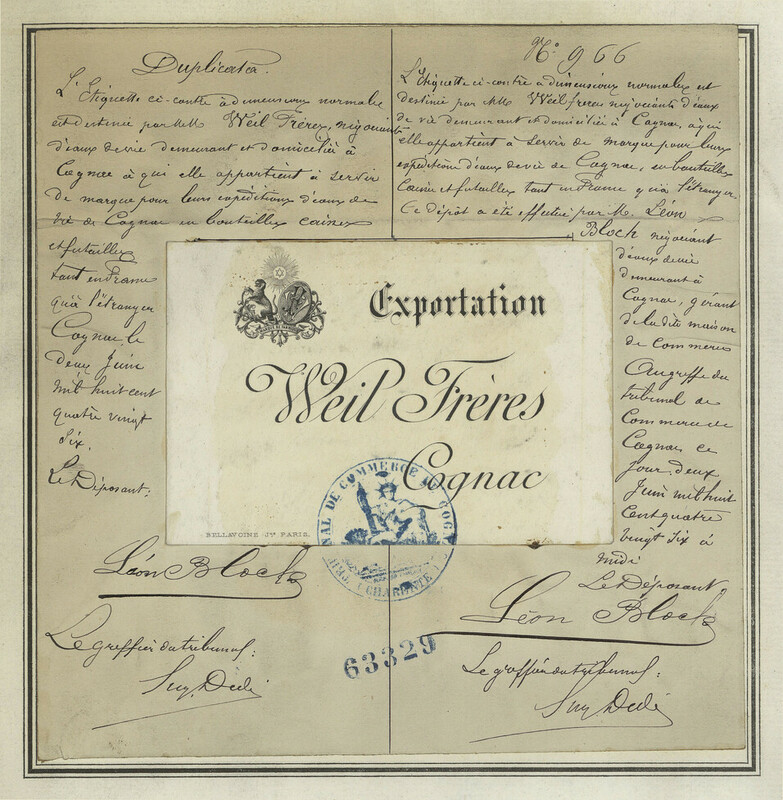 Duplicata.
L'Etiquette ci-contre à dimensions normales
est destinée par MM Weil Frères, négociants
d'eaux de vie demeurant et domiciliés à
Cognac à qui elle appartient à servir
de marque pour leurs expéditions d'eaux de
vie de Cognac en bouteilles caisses
et futailles
tant en France
qu'à l'étranger
Cognac, le
deux Juin
mil huit cent
quatre vingt
six.
Le Déposant:
Léon Bloch
Le greffier du tribunal:
No 966
L'Etiquette ci-contre à dimensions normales est
destinée par MM Weil frères négociants d'eaux
de vie demeurant et domiciliés à Cognac, à qui
elle appartient à servir de marque pour leurs
expéditions d'eaux de vie de Cognac, en bouteilles
Caisses et futailles tant en France qu'à l'étranger.
Ce dépôt a été effectué par M. Léon
Bloch négociant
d'eaux de vie
demeurant à
Cognac, gérant
de la dite maison
de Commerce
Au greffe du
tribunal de
Commerce de
Cognac, ce
jour, deux
Juin mil huit
Cent quatre
vingt six à
midi
Le Déposant
Léon Bloch
Le greffier du tribunal:
Exportation
Weil Frères
Cognac
BELLAVOINE Jne PARIS.
TRIBUNAL DE COMMERCE DE COGNAC
(CHARENTE)
63329